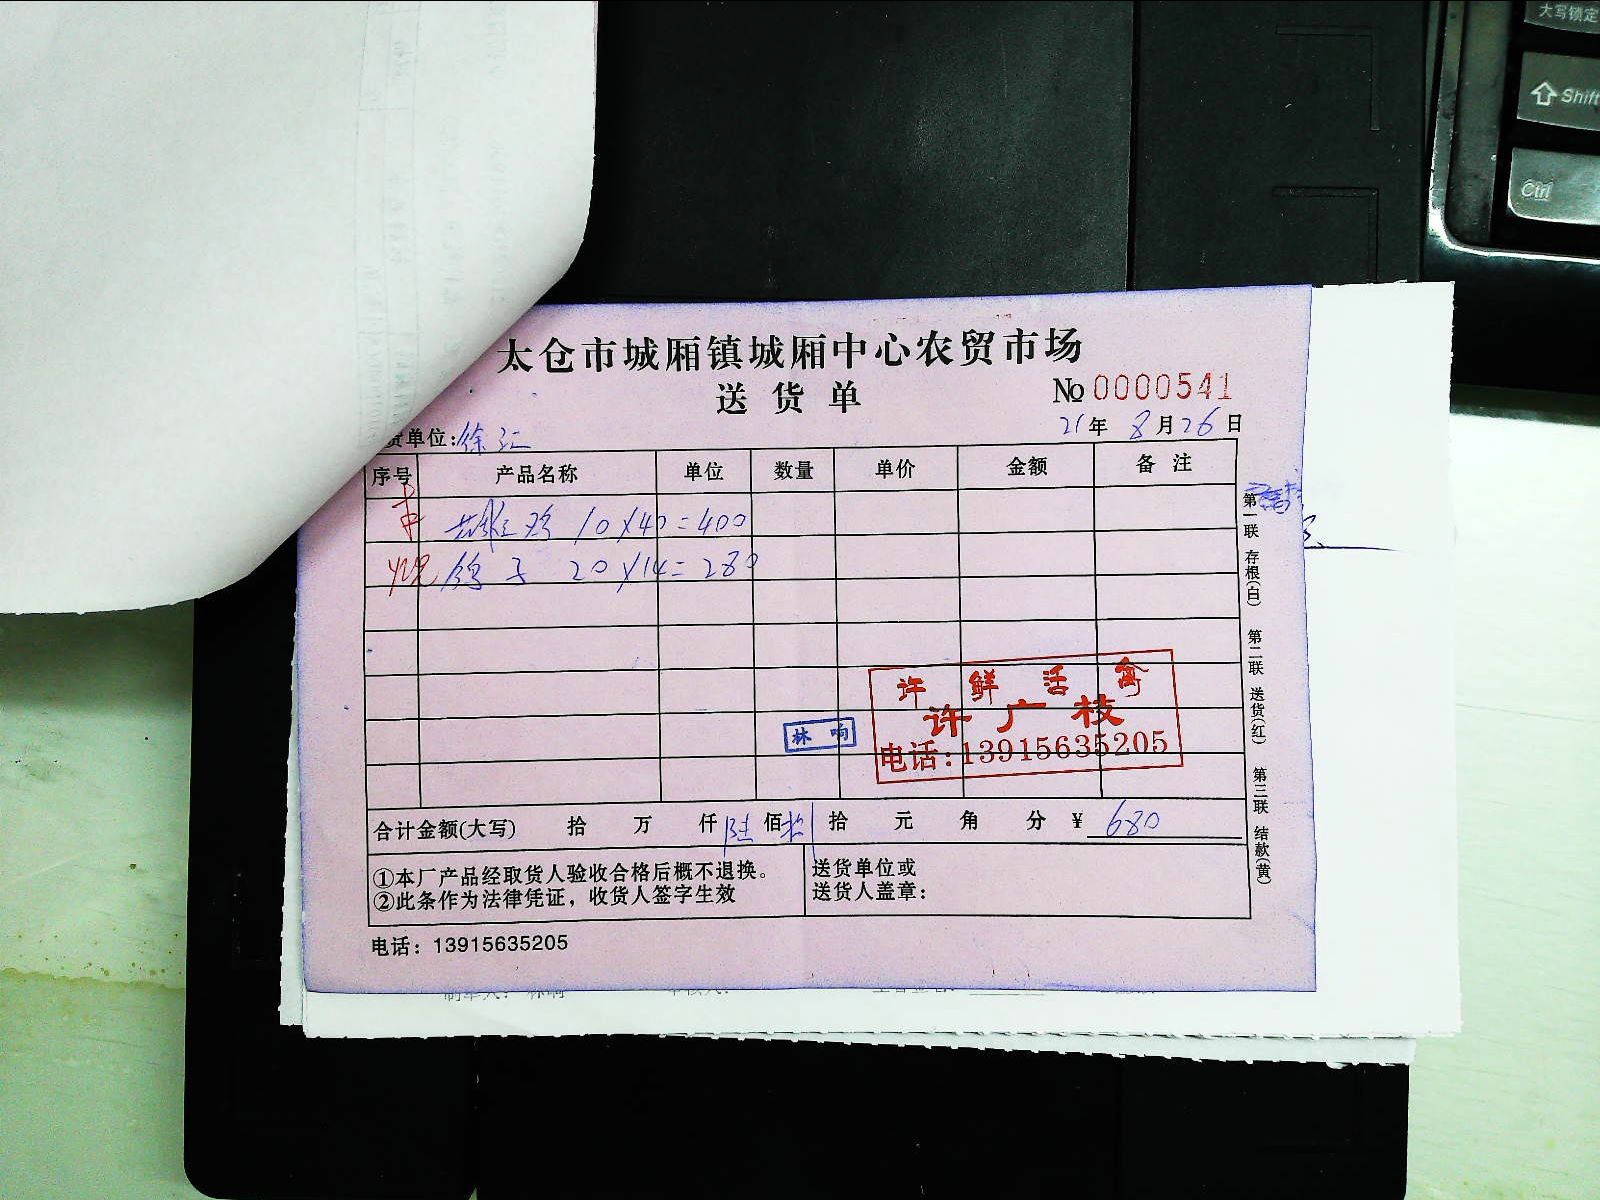 大写锁定
Shift
Ctrl
太仓市城厢镇城厢中心农贸市场
送货单
№ 0000541
货单位:徐汇
21年 8月26日
序号 产品名称 单位 数量 单价 金额 备注
鸡 10×40=400
鸽子 20×14=280
许鲜活禽
许广枝
电话:13915635205
林响
合计金额(大写) 拾 万 仟陆佰捌拾 元 角 分 ¥ 680
①本厂产品经取货人验收合格后概不退换。
②此条作为法律凭证，收货人签字生效
送货单位或
送货人盖章:
电话: 13915635205
第一联 存根(白) 第二联 送货(红) 第三联 结款(黄)